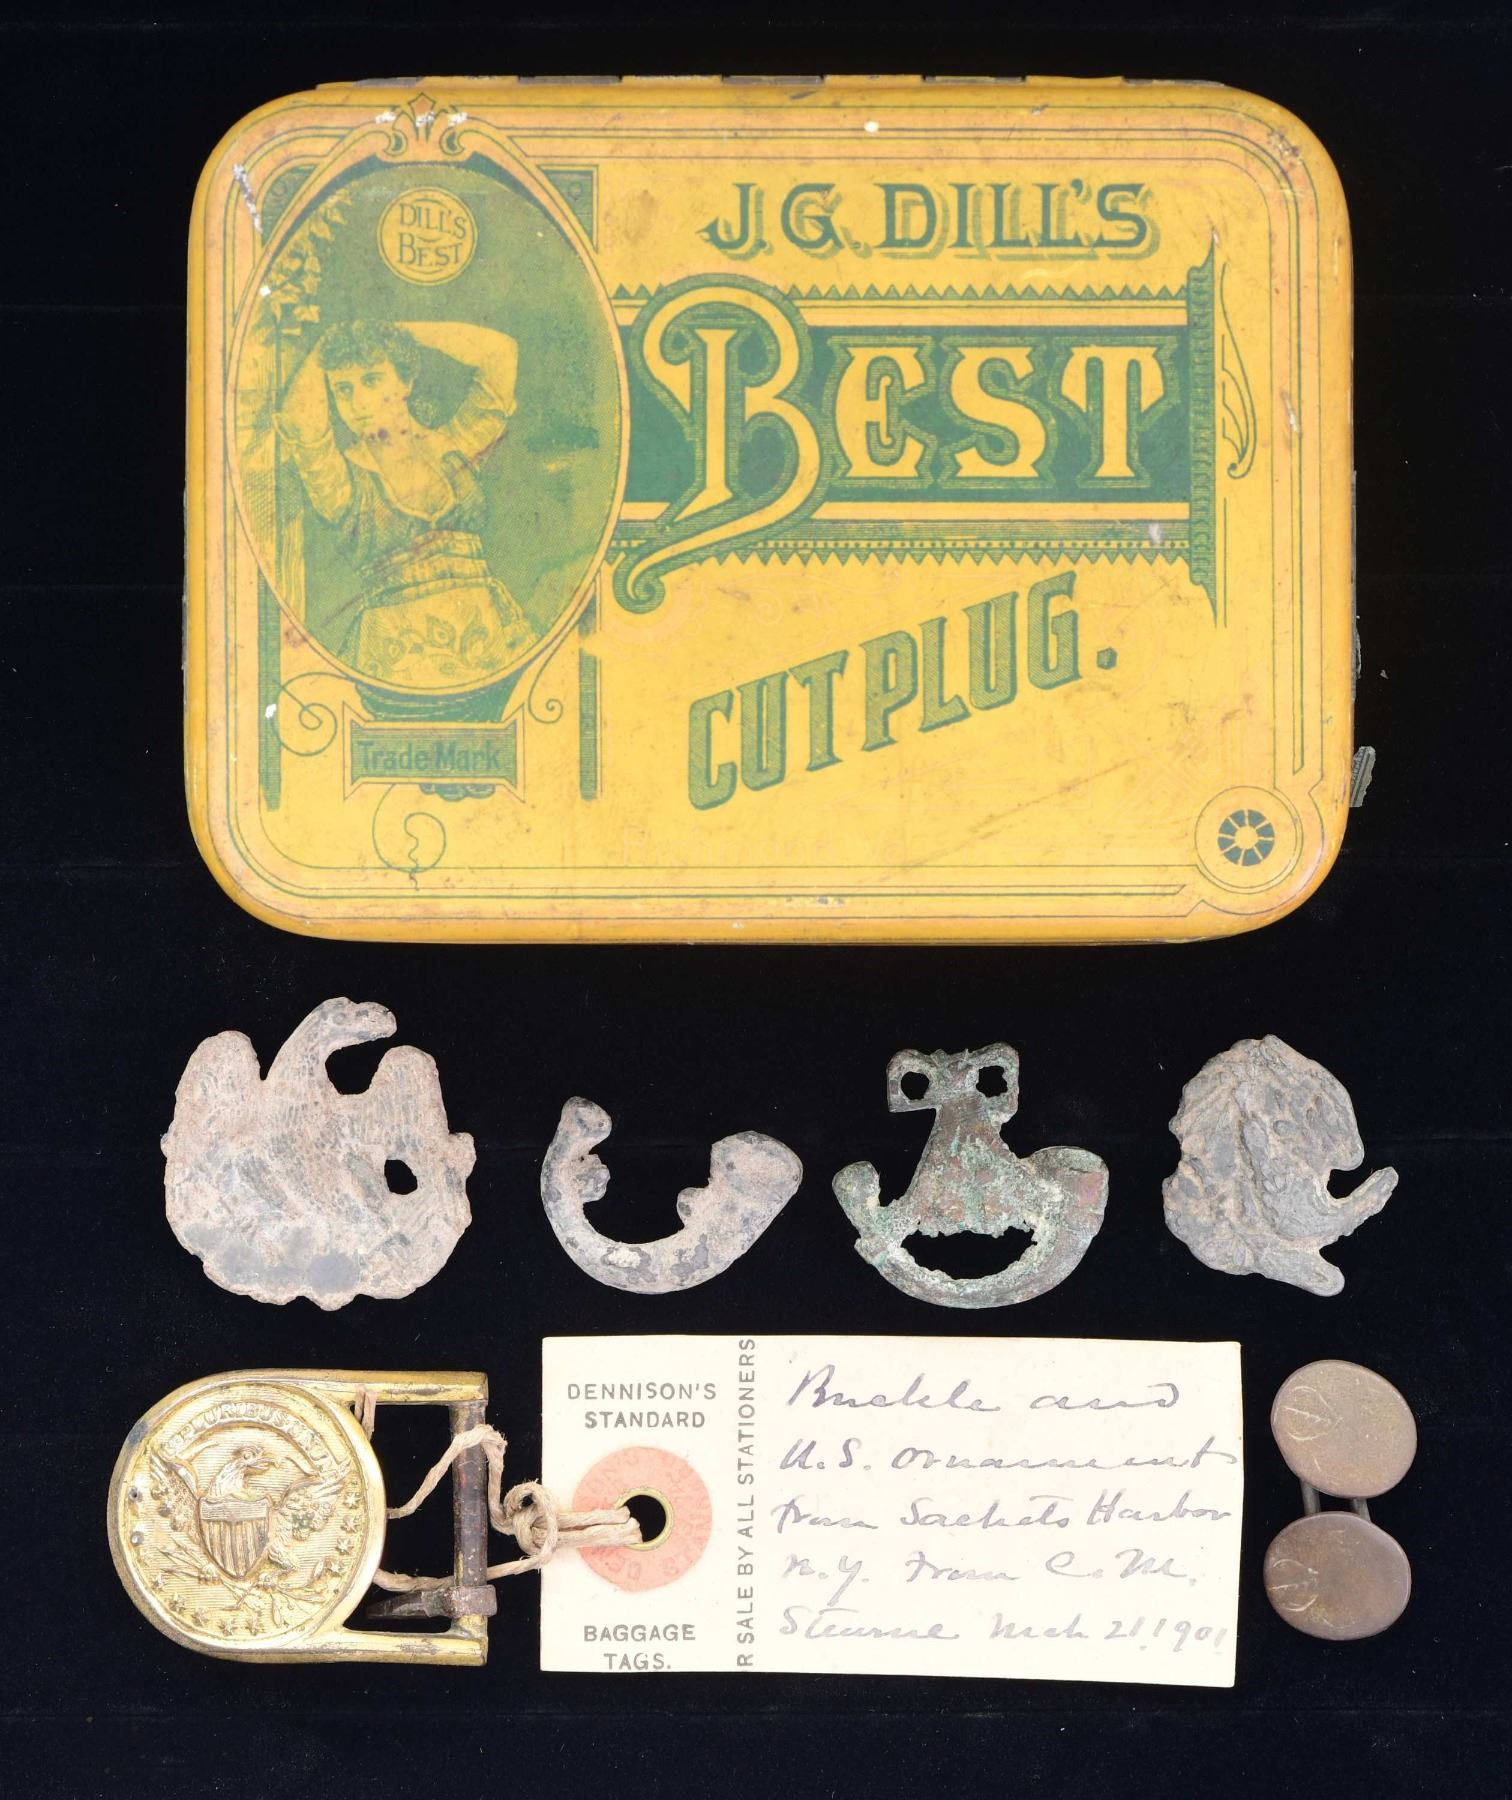 DILL'S
BEST
J.G. DILL'S
BEST
CUT PLUG.
Trade Mark
Richmond, Va
E PLURIBUS UNUM
DENNISON'S
STANDARD
BAGGAGE
TAGS.
R SALE BY ALL STATIONERS
Buckle and
U.S. ornament
from Sackets Harbor
N.Y. From C. M.
Stearne Mch 21, 1901